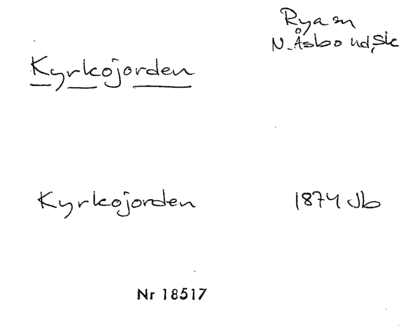 Ryssn
N. Åsbo hd, Sk
Kyrkojorden
Kyrkojorden 1874 Jb
Nr 18517